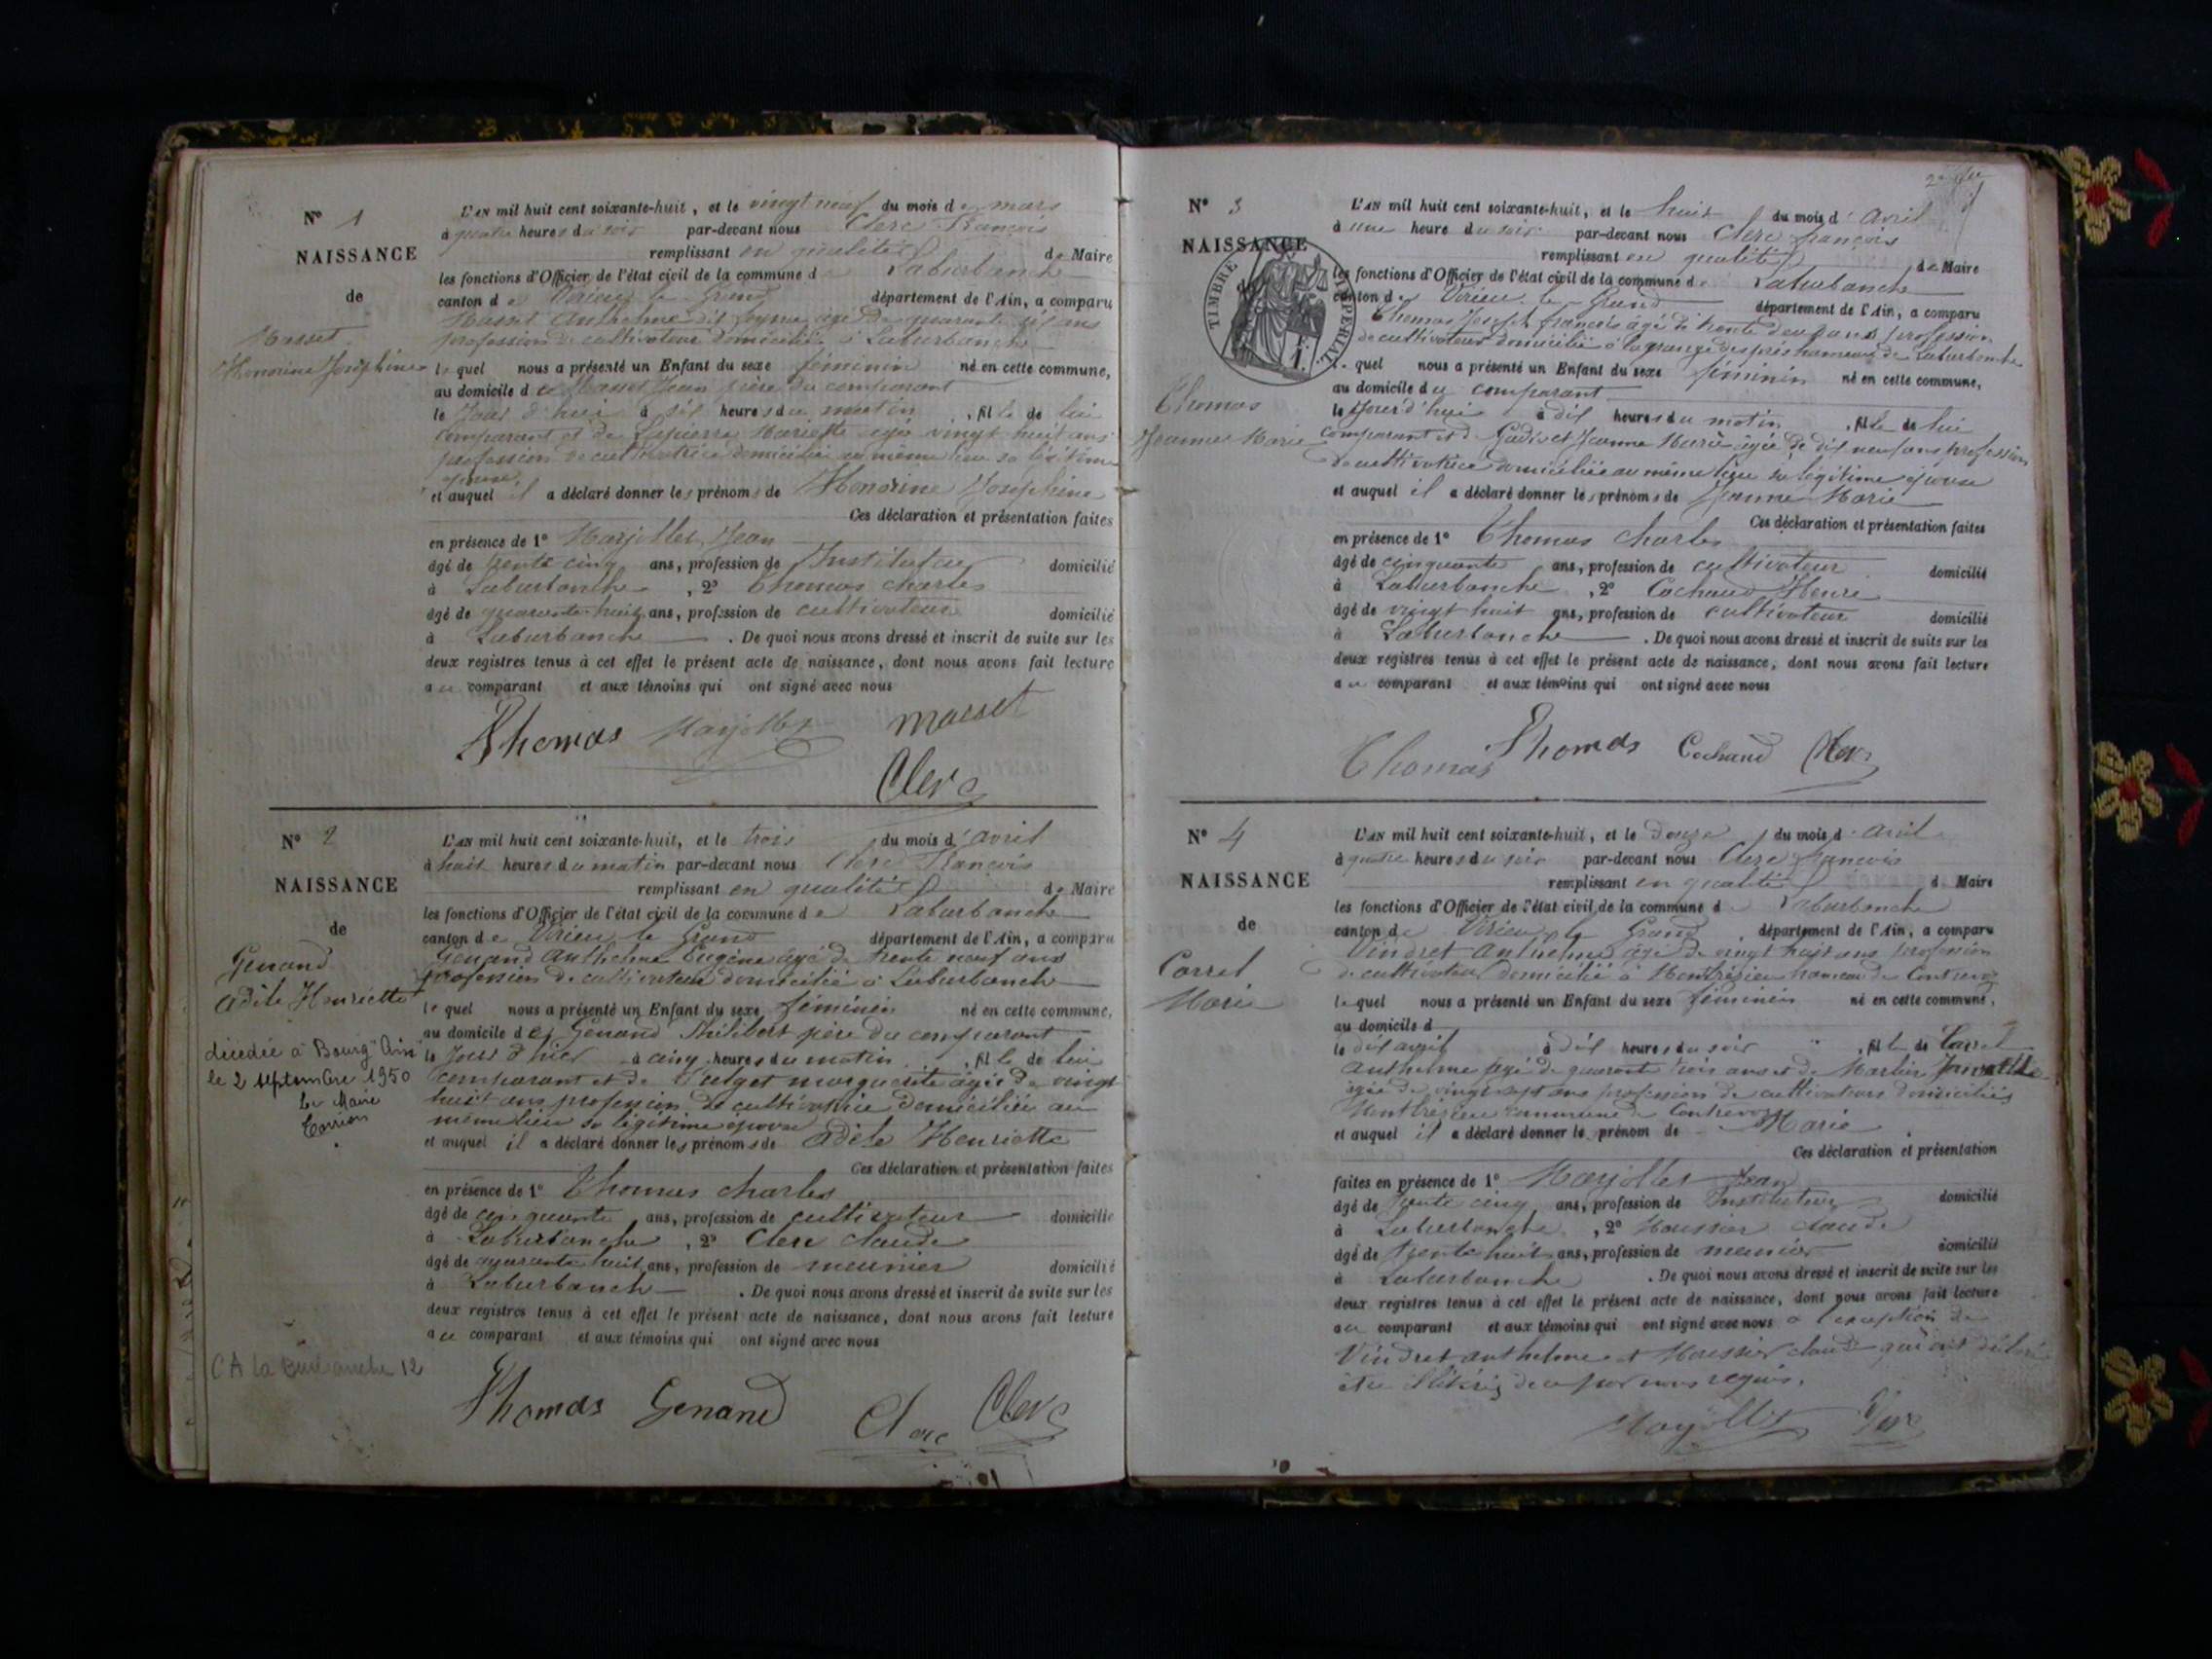 N° 1
NAISSANCE
de
Masset
Honorine Joséphine
L'AN mil huit cent soixante-huit, et le vingt neuf du mois de mars
à quatre heures du soir par-devant nous Clerc François
remplissant en qualité de Maire
les fonctions d'Officier de l'état civil de la commune de Laburbanche
canton de Virieu le Grand département de l'Ain, a comparu
Masset Anthelme dit âgé de quarante six ans
profession de cultivateur domicilié à Laburbanche
lequel nous a présenté un Enfant du sexe féminin né en cette commune,
au domicile de Masset Jean père du comparant
le jour d'hui à six heures du matin, fille de lui
comparant et de Lapierre Mariette âgée vingt huit ans
profession de cultivatrice domiciliée au même lieu sa légitime
épouse
et auquel il a déclaré donner les prénoms de Honorine Joséphine
Ces déclaration et présentation faites
en présence de 1° Marjollet Jean
âgé de trente cinq ans, profession de Instituteur domicilié
à Laburbanche, 2° Thomas Charles
âgé de quarante huit ans, profession de cultivateur domicilié
à Laburbanche. De quoi nous avons dressé et inscrit de suite sur les
deux registres tenus à cet effet le présent acte de naissance, dont nous avons fait lecture
au comparant et aux témoins qui ont signé avec nous
Thomas Marjollet masset
Clerc
N° 2
NAISSANCE
de
Genand
Adèle Henriette
décédée à Bourg "Ain"
le 2 septembre 1950
Le Maire
L'AN mil huit cent soixante-huit, et le trois du mois d'avril
à huit heures du matin par-devant nous Clerc François
remplissant en qualité de Maire
les fonctions d'Officier de l'état civil de la commune de Laburbanche
canton de Virieu le Grand département de l'Ain, a comparu
Genand Anthelme Eugène âgé de trente neuf ans
profession de cultivateur domicilié à Laburbanche
lequel nous a présenté un Enfant du sexe féminin né en cette commune,
au domicile de Genand Philibert père du comparant
le jour d'hier à cinq heures du matin, fille de lui
comparant et de marguerite âgée de vingt
huit ans profession de cultivatrice domiciliée au
même lieu sa légitime épouse
et auquel il a déclaré donner les prénoms de Adèle Henriette
Ces déclaration et présentation faites
en présence de 1° Thomas Charles
âgé de cinquante ans, profession de cultivateur domicilié
à Laburbanche, 2° Clerc Claude
âgé de quarante huit ans, profession de meunier domicilié
à Laburbanche. De quoi nous avons dressé et inscrit de suite sur les
deux registres tenus à cet effet le présent acte de naissance, dont nous avons fait lecture
au comparant et aux témoins qui ont signé avec nous
CA la Burbanche 12
Thomas Genand Clerc Clerc
N° 3
NAISSANCE
de
TIMBRE IMPERIAL
Thomas
Jeanne Marie
L'AN mil huit cent soixante-huit, et le huit du mois d'avril
à une heure du soir par-devant nous Clerc françois
remplissant en qualité de Maire
les fonctions d'Officier de l'état civil de la commune de Laburbanche
canton de Virieu le Grand département de l'Ain, a comparu
Thomas Joseph françois âgé de trente deux ans profession
de cultivateur domicilié à la grange des prés hameau de Laburbanche
lequel nous a présenté un Enfant du sexe féminin né en cette commune,
au domicile du comparant
le jour d'hui à dix heures du matin, fille de lui
comparant et de Jeanne Marie âgée de dix neuf ans profession
de cultivatrice domiciliée au même lieu sa légitime épouse
et auquel il a déclaré donner les prénoms de Jeanne Marie
Ces déclaration et présentation faites
en présence de 1° Thomas Charles
âgé de cinquante ans, profession de cultivateur domicilié
à Laburbanche, 2° Cochand Henri
âgé de vingt huit ans, profession de cultivateur domicilié
à Laburbanche. De quoi nous avons dressé et inscrit de suite sur les
deux registres tenus à cet effet le présent acte de naissance, dont nous avons fait lecture
au comparant et aux témoins qui ont signé avec nous
Thomas Thomas Cochand Clerc
N° 4
NAISSANCE
de
Carrel
Marie
L'AN mil huit cent soixante-huit, et le douze du mois d'avril
à quatre heures du soir par-devant nous Clerc françois
remplissant en qualité d Maire
les fonctions d'Officier de l'état civil de la commune d Laburbanche
canton de Virieu le Grand département de l'Ain, a comparu
Vindret anthelme âgé de vingt huit ans profession
de cultivateur domicilié à hameau de Contrevoz
lequel nous a présenté un Enfant du sexe féminin né en cette commune,
au domicile d
le dix avril à dix heures du soir, fille de Carrel
Anthelme âgé de quarante trois ans et de Martin
âgée de vingt sept ans profession de cultivateurs domiciliés
commune de Contrevoz
et auquel il a déclaré donner le prénom de Marie
Ces déclaration et présentation
faites en présence de 1° Marjollet Jean
âgé de trente cinq ans, profession de Instituteur domicilié
à Laburbanche, 2° Claude
âgé de trente huit ans, profession de meunier domicilié
à Laburbanche. De quoi nous avons dressé et inscrit de suite sur les
deux registres tenus à cet effet le présent acte de naissance, dont nous avons fait lecture
au comparant et aux témoins qui ont signé avec nous à l'exception de
Vindret anthelme et Claude qui ont déclaré
être illétrés de ce par nous requis.
Marjollet Clerc